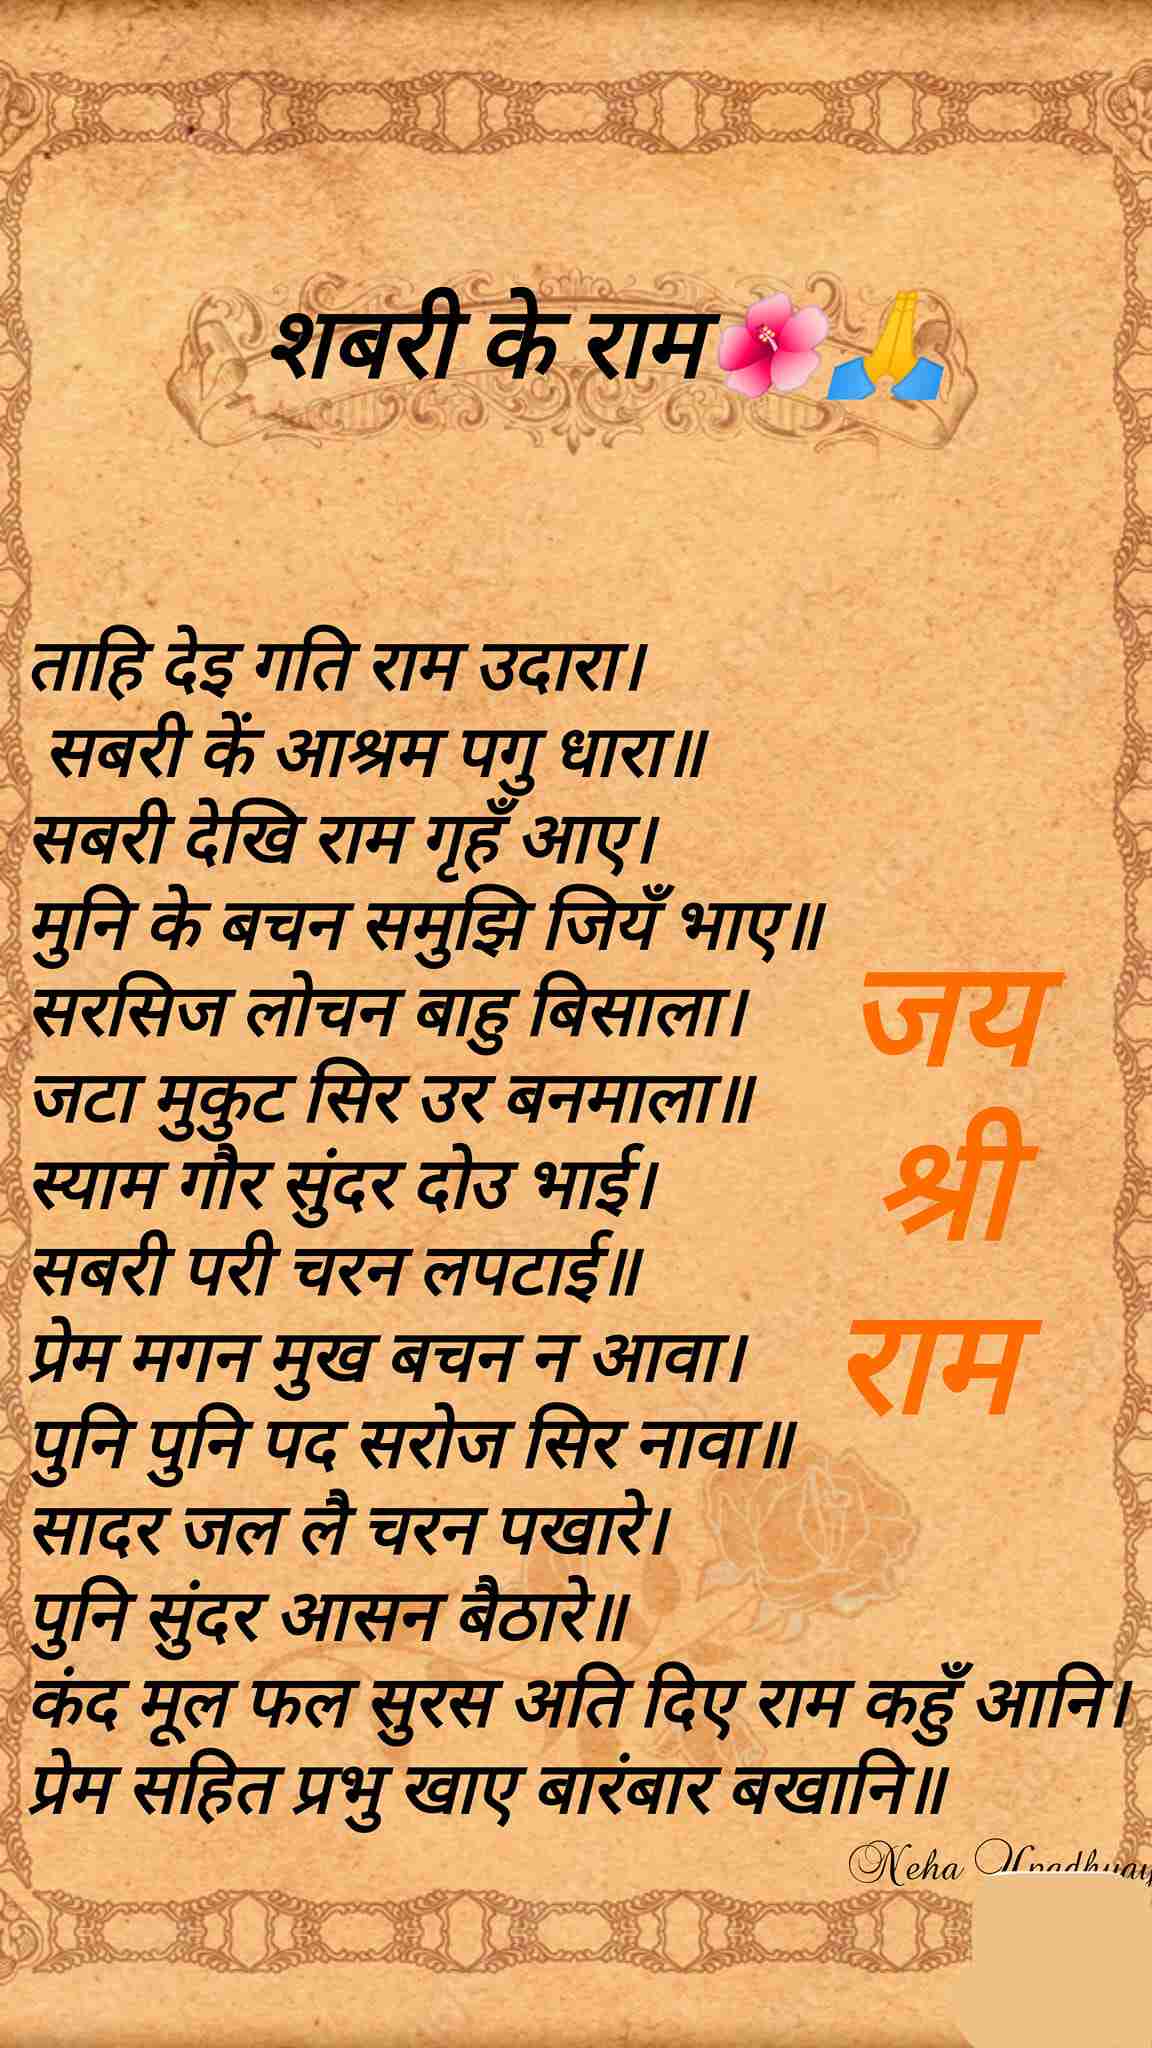 शबरी के राम🌺🙏
ताहि देइ गति राम उदारा।
सबरी कें आश्रम पगु धारा॥
सबरी देखि राम गृहँ आए।
मुनि के बचन समुझि जियँ भाए॥
सरसिज लोचन बाहु बिसाला।
जटा मुकुट सिर उर बनमाला॥
स्याम गौर सुंदर दोउ भाई।
सबरी परी चरन लपटाई॥
प्रेम मगन मुख बचन न आवा।
पुनि पुनि पद सरोज सिर नावा॥
सादर जल लै चरन पखारे।
पुनि सुंदर आसन बैठारे॥
कंद मूल फल सुरस अति दिए राम कहुँ आनि।
प्रेम सहित प्रभु खाए बारंबार बखानि॥
जय
श्री
राम
Neha